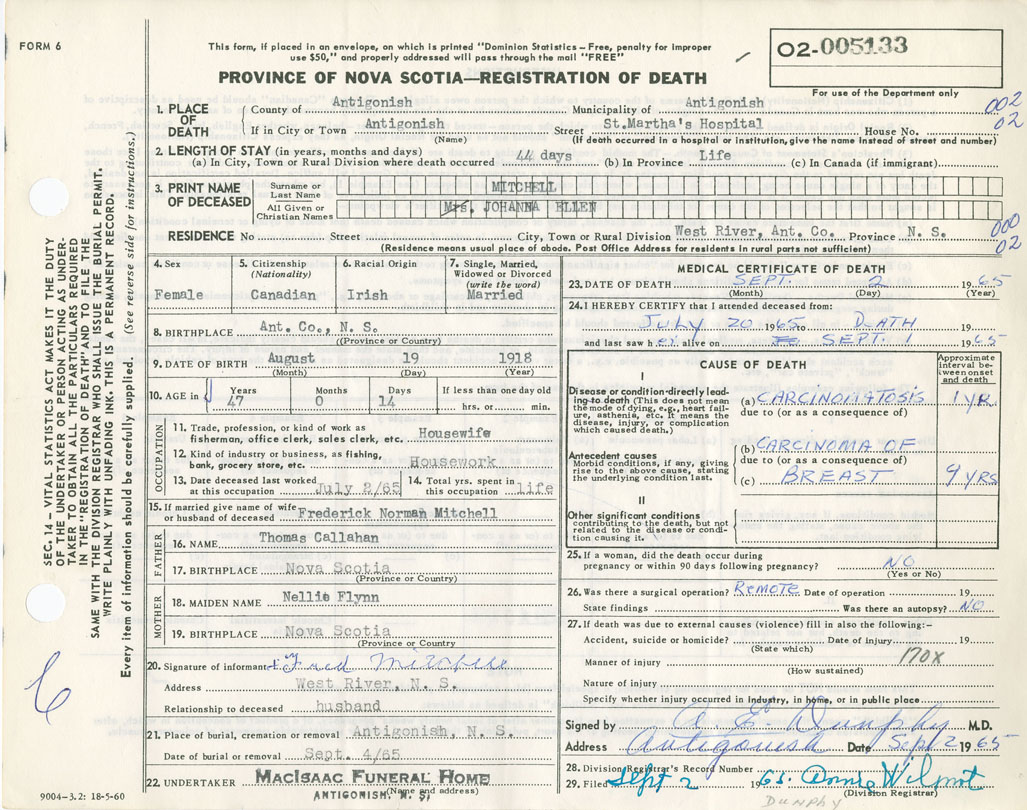 FORM 6
This form, if placed in an envelope, on which is printed "Dominion Statistics – Free, penalty for improper
use $50," and properly addressed will pass through the mail "FREE"
O2-005133
PROVINCE OF NOVA SCOTIA—REGISTRATION OF DEATH
For use of the Department only
1. PLACE OF DEATH
County of Antigonish Municipality of Antigonish 002
If in City or Town Antigonish Street St.Martha's Hospital House No. 02
(Name) (If death occurred in a hospital or institution, give the name instead of street and number)
2. LENGTH OF STAY (in years, months and days)
(a) In City, Town or Rural Division where death occurred 44 days (b) In Province Life (c) In Canada (if immigrant)
3. PRINT NAME OF DECEASED
Surname or Last Name MITCHELL
All Given or Christian Names Mrs. JOHANNA ELLEN
RESIDENCE No Street City, Town or Rural Division West River, Ant. Co. Province N. S. 000 02
(Residence means usual place of abode. Post Office Address for residents in rural parts not sufficient)
4. Sex
Female
5. Citizenship
(Nationality)
Canadian
6. Racial Origin
Irish
7. Single, Married,
Widowed or Divorced
(write the word)
Married
8. BIRTHPLACE Ant. Co., N. S.
((Province or Country)
9. DATE OF BIRTH August 19 1918
(Month) (Day) (Year)
10. AGE in
Years Months Days If less than one day old
47 0 14 hrs. or min.
OCCUPATION
11. Trade, profession, or kind of work as
fisherman, office clerk, sales clerk, etc. Housewife
12. Kind of industry or business, as fishing,
bank, grocery store, etc. Housework
13. Date deceased last worked
at this occupation July 2/65
14. Total yrs. spent in
this occupation life
15. If married give name of wife
or husband of deceased Frederick Norman Mitchell
FATHER
16. NAME Thomas Callahan
17. BIRTHPLACE Nova Scotia
(Province or Country)
MOTHER
18. MAIDEN NAME Nellie Flynn
19. BIRTHPLACE Nova Scotia
(Province or Country)
20. Signature of informant Fred Mitchell
Address West River, N. S.
Relationship to deceased husband
21. Place of burial, cremation or removal Antigonish, N. S.
Date of burial or removal Sept. 4/65
22. UNDERTAKER MacIsaac Funeral Home
(Name and address)
ANTIGONISH, N. S.
MEDICAL CERTIFICATE OF DEATH
23. DATE OF DEATH SEPT. 2 1965
(Month) (Day) (Year)
24. I HEREBY CERTIFY that I attended deceased from:
JULY 20 1965 to DEATH 19
and last saw her alive on SEPT. 1 1965
CAUSE OF DEATH
Approximate
interval between onset
and death
I
Disease or condition directly leading to death (This does not mean
the mode of dying, e.g., heart failure, asthenia, etc. It means the
disease, injury, or complication
which caused death.)
(a) CARCINOMATOSIS 1 YR.
due to (or as a consequence of)
Antecedent causes
Morbid conditions, if any, giving
rise to the above cause, stating
the underlying condition last.
(b) CARCINOMA OF
due to (or as a consequence of)
(c) BREAST 9 YRS
II
Other significant conditions
contributing to the death, but not
related to the disease or condition causing it.
25. If a woman, did the death occur during
pregnancy or within 90 days following pregnancy? NO
(Yes or No)
26. Was there a surgical operation? REMOTE Date of operation 19
State findings Was there an autopsy? NO
27. If death was due to external causes (violence) fill in also the following:–
Accident, suicide or homicide? Date of injury 19
(State which)
Manner of injury 170X
(How sustained)
Nature of injury
Specify whether injury occurred in industry, in home, or in public place
Signed by A. E. Dunphy M.D.
Address Antigonish Date Sept 2 1965
28. Division Registrar's Record Number
29. Filed Sept 2 1965. Annie Wilmot
(Division Registrar)
DUNPHY
SEC. 14 – VITAL STATISTICS ACT MAKES IT THE DUTY
OF THE UNDERTAKER OR PERSON ACTING AS UNDERTAKER TO OBTAIN ALL THE PARTICULARS REQUIRED
IN THE "REGISTRATION OF DEATH" AND TO FILE THE
SAME WITH THE DIVISION REGISTRAR WHO SHALL ISSUE THE BURIAL PERMIT.
WRITE PLAINLY WITH UNFADING INK. THIS IS A PERMANENT RECORD.
Every item of information should be carefully supplied. (See reverse side for instructions.)
9004–3.2: 18-5-60